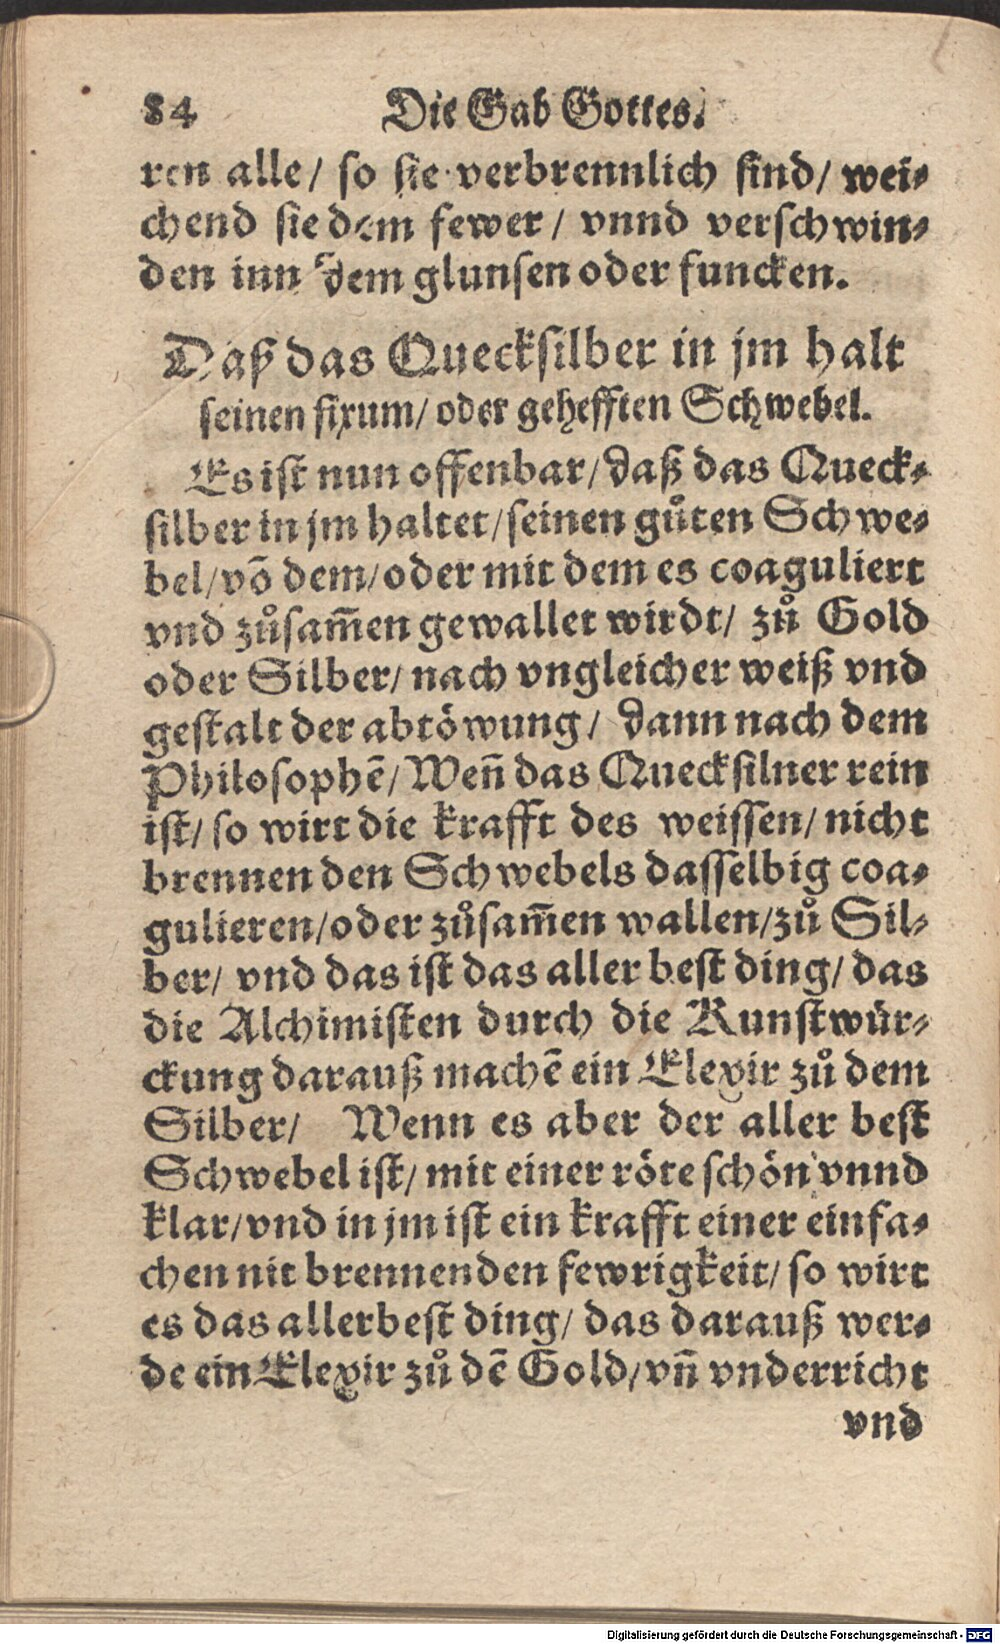 84 Die Gab Gottes.
ren alle/ so sie verbrennlich sind/ wei⸗
chend sie dem fewer/ vnnd verschwin⸗
den inn dem glunsen oder funcken.
Daß das Quecksilber in jm halt
seinen fixum/ oder gehefften Schwebel.
Es ist nun offenbar/ daß das Queck⸗
silber in jm haltet/ seinen gůten Schwe⸗
bel/ võ dem/ oder mit dem es coaguliert
vnd zůsam̃en gewallet wirdt/ zů Gold
oder Silber/ nach vngleicher weiß vnd
gestalt der abtöwung/ dann nach dem
Philosophẽ/ Weñ das Quecksilner rein
ist/ so wirt die krafft des weissen/ nicht
brennenden Schwebels dasselbig coa⸗
gulieren/ oder zůsam̃en wallen/ zů Sil⸗
ber/ vnd das ist das aller best ding/ das
die Alchimisten durch die Kunstwür⸗
ckung darauß machẽ ein Elexir zů dem
Silber/ Wenn es aber der aller best
Schwebel ist/ mit einer röte schön vnnd
klar/ vnd in jm ist ein krafft einer einfa⸗
chen nit brennenden fewrigkeit/ so wirt
es das allerbest ding/ das darauß wer⸗
de ein Elexir zů dẽ Gold/ vñ vnderricht
vnd
Digitalisierung gefördert durch die Deutsche Forschungsgemeinschaft - DFG